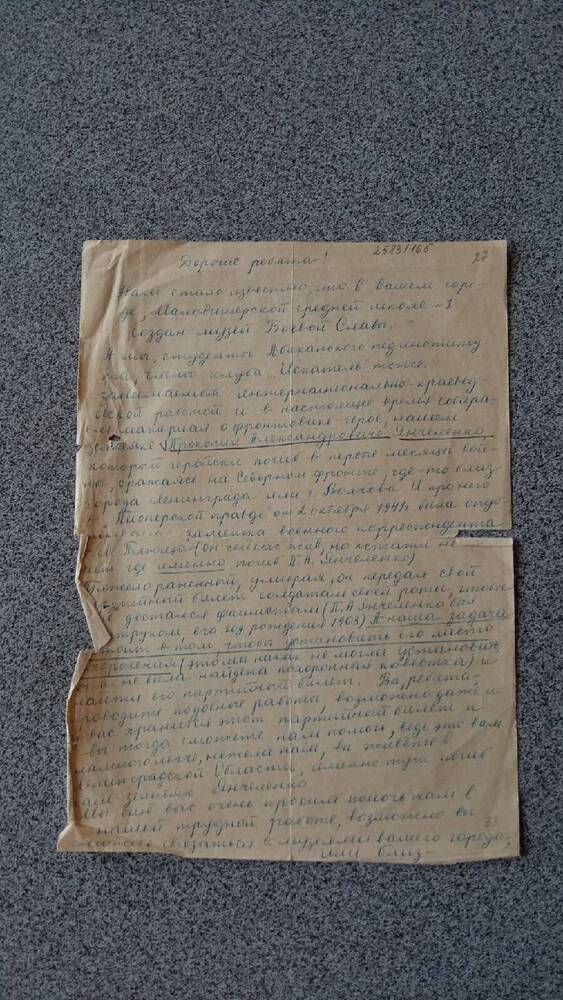 2583/165
27
Дорогие ребята!
Нам стало известно, что в вашем горо-
де, Маловишерской средней школе -1
создан музей Боевой Славы.
А мы, студенты Абаканского пединститу
та, члены клуба "Искатель" тоже
занимаемся интернационально-краевед
ской работой и в настоящее время собира
ем материал о фронтовике герое, нашем
земляке Прокопии Александровиче Янчеленко
который геройски погиб в первые месяцы вой-
ны, сражаясь на Северном фронте, где-то близ
города Ленинграда или г. Волхова. И про него
в "Пионерской правде" от 2 октября 1941г. была
заметка военного корреспондента
М (он сейчас жив, но кстати не
где именно погиб П.А. Янчеленко)
Тяжело раненный, умирая, он передал свой
партийный билет солдатам своей роты, чтобы
достался фашистам (П.А Янчеленко был
его год рождения 1903) А наша задача
состоит в том, чтобы установить его место
захоронения (это мы никак не могли установить,
и не была найдена похоронная повестка) и
найти его партийный билет. Вы, ребята,
проводите подобные работы, возможно даже и
у вас хранится этот партийный билет и
вы тогда сможете нам помочь, ведь это вам
намного легче, нежели нам, вы живёте в
Ленинградской области, именно тут погиб
наш земляк Янчеленко
Мы бы вас очень просили помочь нам в
нашей трудной работе, возможно вы
33
сможете связаться с музеями вашего города,
или близ-